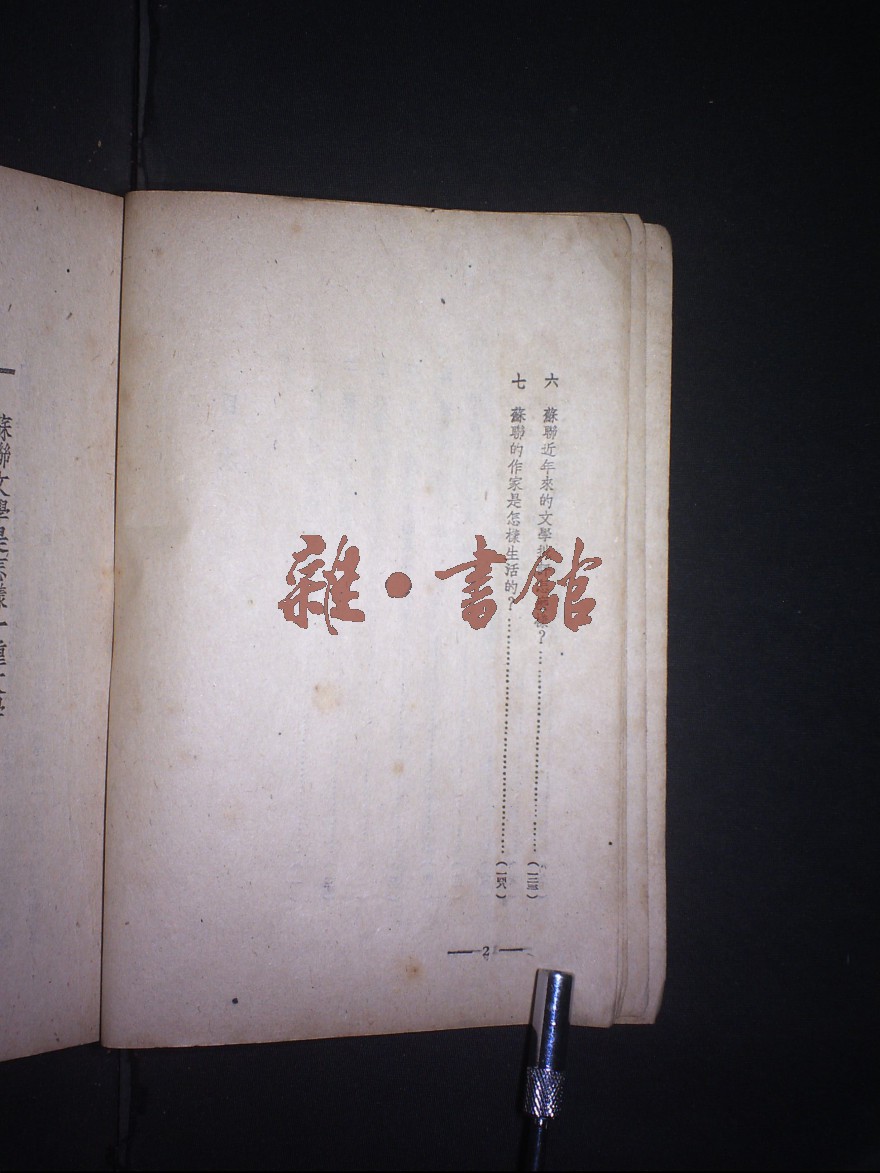 六 蘇聯近年來的文學 ？……………………（一三
七 蘇聯的作家是怎樣生活的？……………………（一
— 2 —
一 蘇聯文學是怎樣一種文學
雜·書館